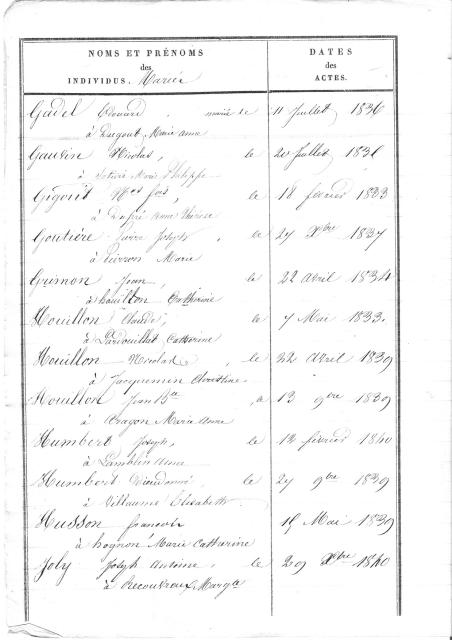 NOMS ET PRÉNOMS
des
INDIVIDUS. Mariés
DATES
des
ACTES.
Gadel Edouard, marié le 11 Juillet 1836
à Dugout Marie anne
Gauvin Nicolas, le 20 Juillet 1836
à Marie Philippe
Gigout Nas fois, le 18 février 1833
à Dupré Anne Thérèse
Goutière Pierre Joseph, le 27 Xbre 1837
à Pierson Marie
Grimon Jean, le 22 avril 1834
à houillon Catherine
Houillon Claude, le 7 Mai 1833.
à Lardouillet Catherine
Houillon Nicolas, le 22 avril 1839
à Jacquemin Christine
Houillon Jean Bte, le 13 9bre 1839
à Aragon Marie Anne
Humbert Joseph, le 12 février 1840
à Lamblin Anne
Humbert Dieudonné, le 27 9bre 1839
à Villaume Elisabeth
Husson francois 15 Mai 1839
à hognon Marie Catherine
Joly Joseph Antoine, le 29 Xbre 1840
à Recouvreux Margte